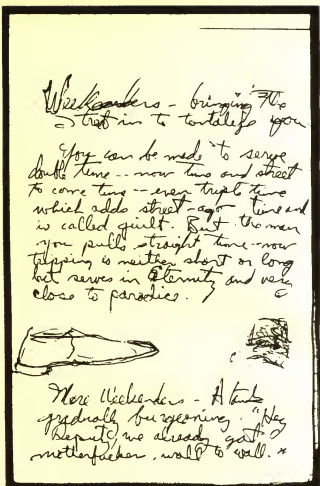 Weekenders - bringing the
Street in to tantalize you
You can be made to serve
double time -- now time and street
to come time -- even triple time
which adds street - ago time and
is called guilt. But the man
you pulls straight time -- now
tripping is neither short or long
but serves in Eternity and very
close to paradise.
More Weekenders - A tank
gradually burgeoning. "Hey
Deputy, we already got
motherfucker, wall to wall."